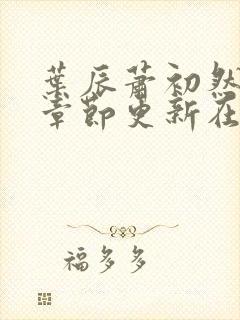 葉辰蕭初然
章節更新在
福多多